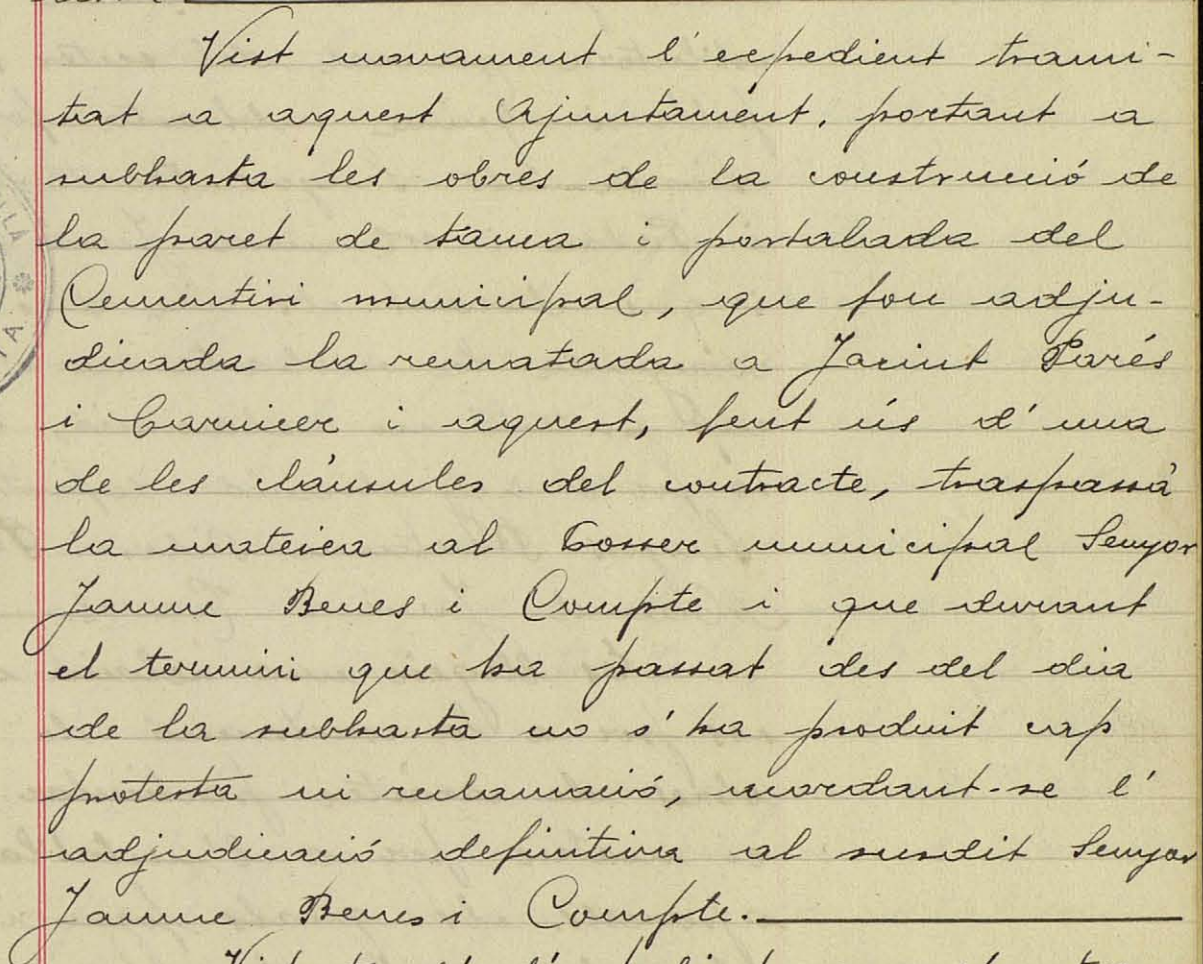 Vist novament l'expedient trami-
tat a aquest Ajuntament, portant a
subhasta les obres de la construcció de
la paret de tanca i portalada del
Cementiri municipal, que fou adju-
dicada la rematada a Jacint Parés
i Carnicer i aquest, fent ús d'una
de les clàusules del contracte, traspassà
la mateixa al Cosser municipal Senyor
Jaume Benes i Compte i que durant
el termini que ha passat des del dia
de la subhasta no s'ha produit cap
protesta ni reclamació, acordant-se l'
adjudicació definitiva al susdit Senyor
Jaume Benes i Compte.